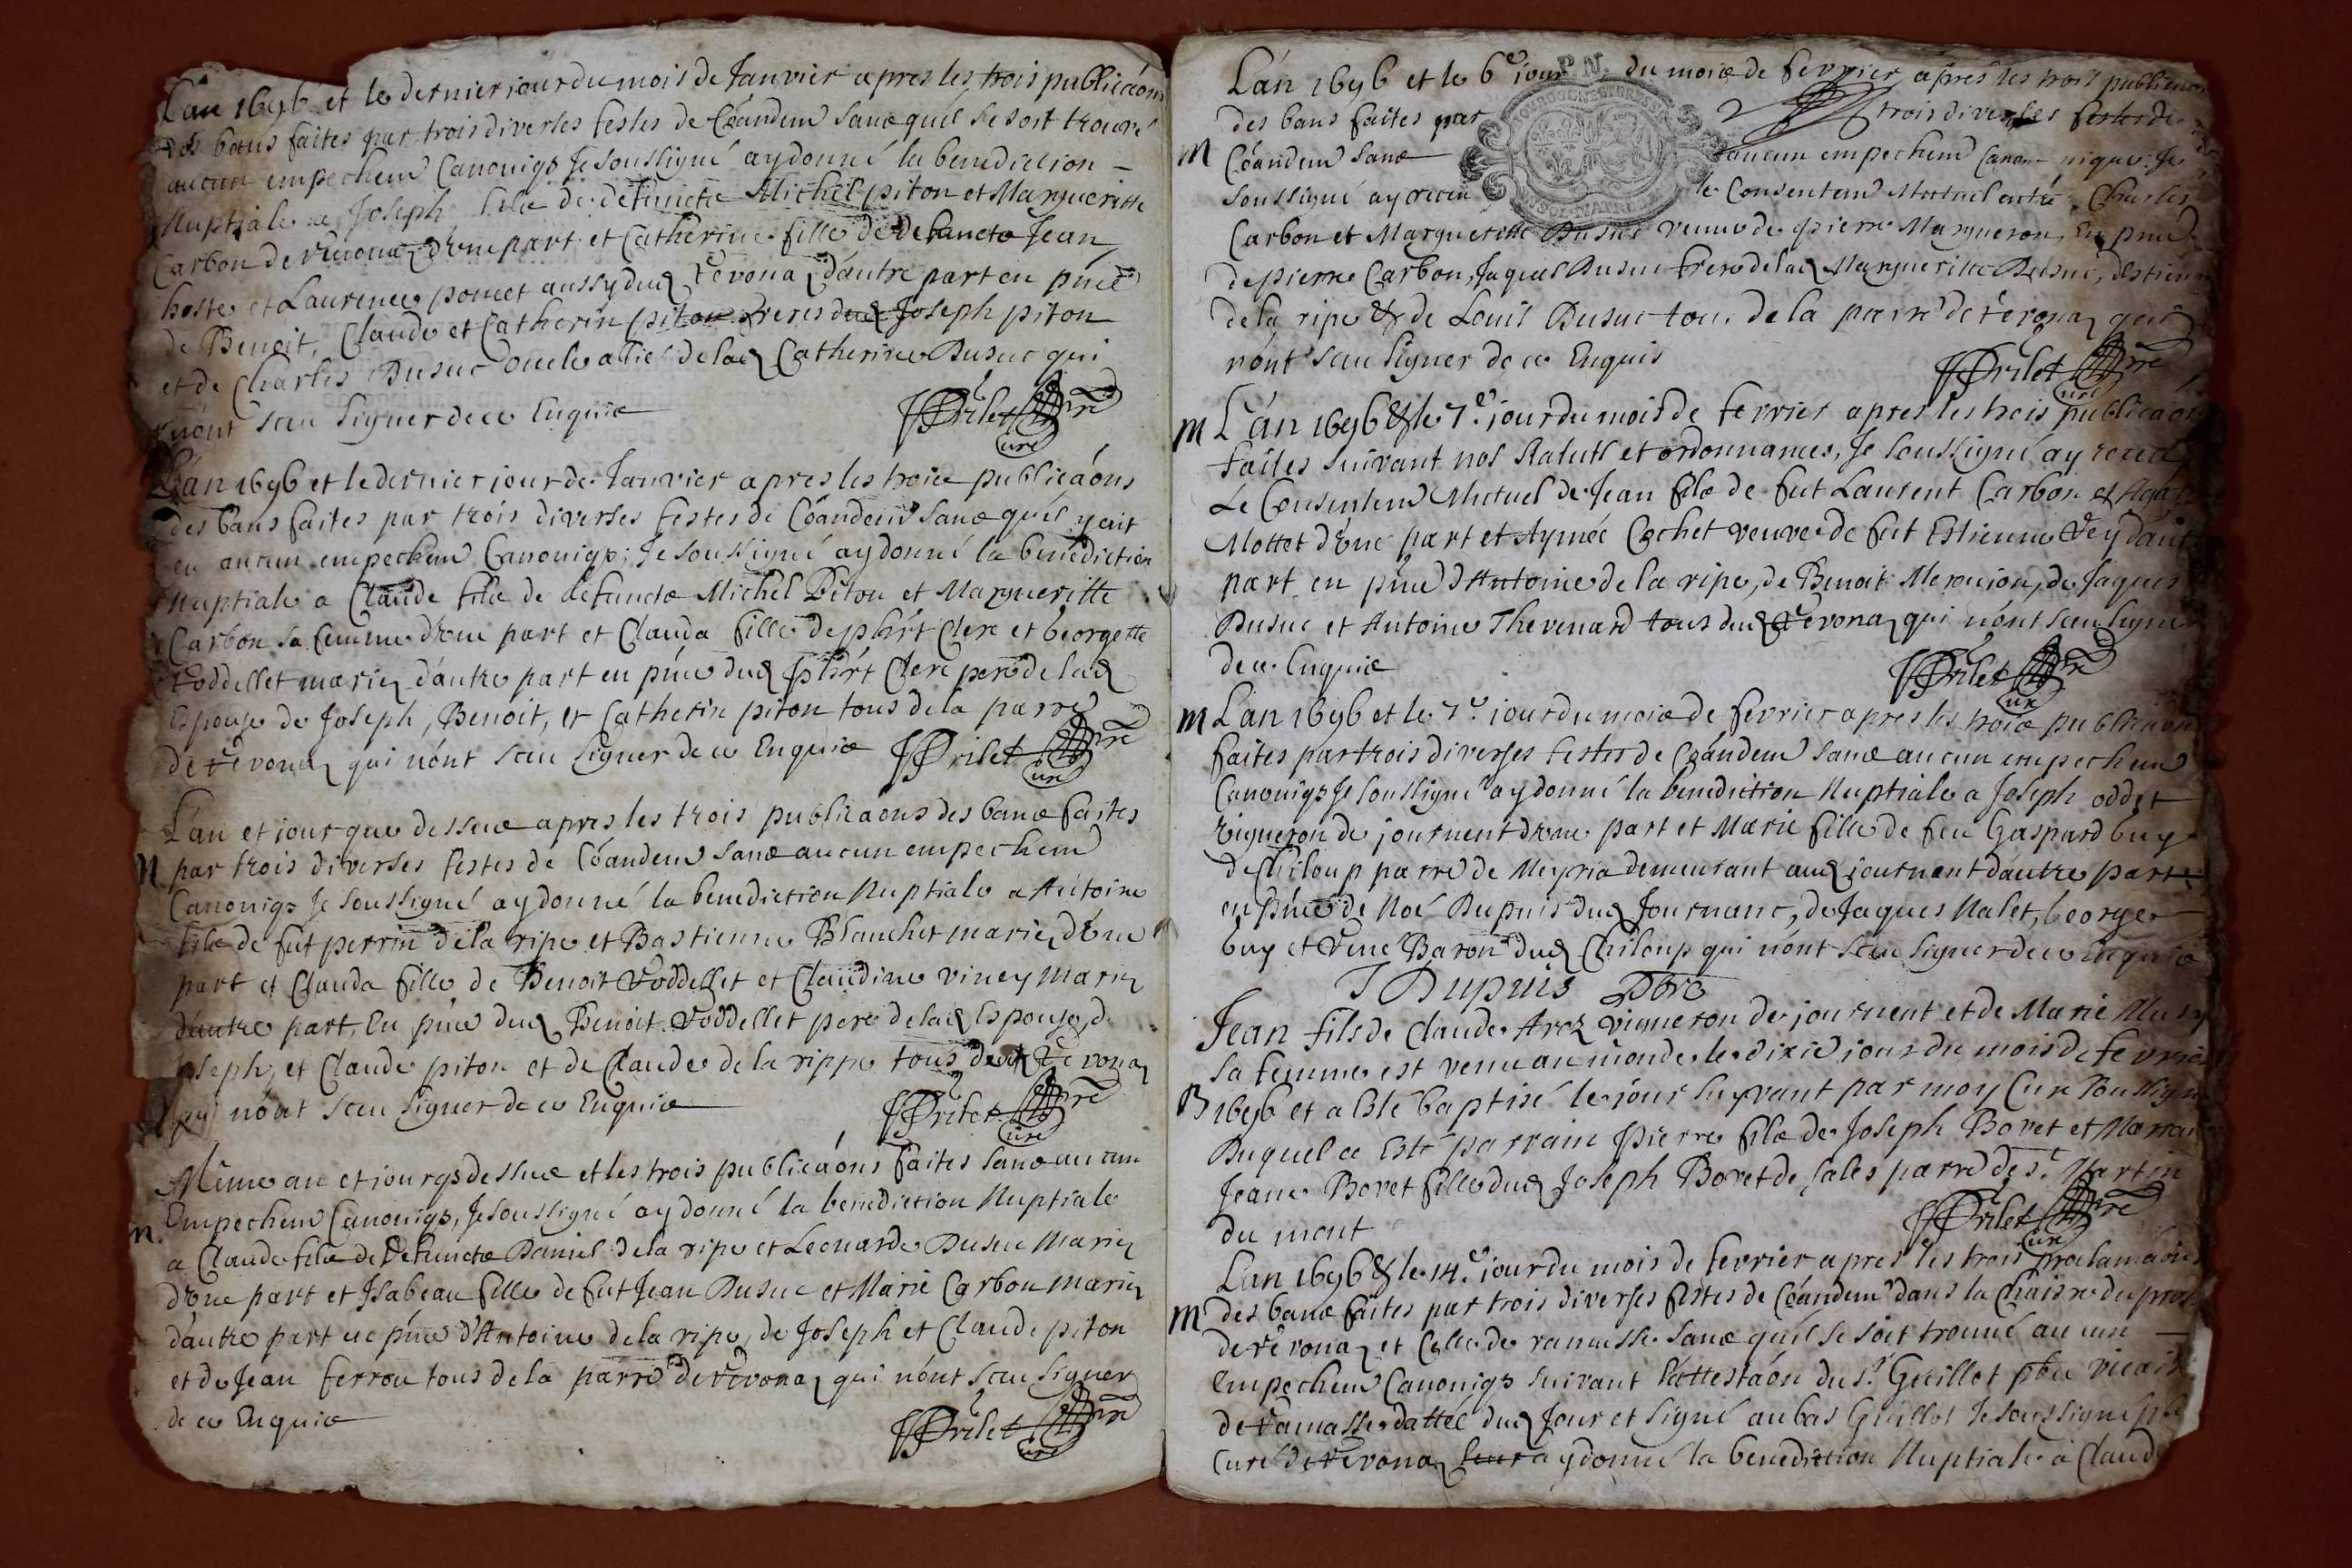 L'an 1696 et le dernier jour du mois de Janvier apres les trois publicãons
des bans faites par trois diverses festes de Cõandem̃ sans qu'il se soit trouvé
aucun empechem̃ Canoniqȝ Je soussigné ay donné la benediction
Nuptiale a Joseph fils de defuncts Michel piton et Margueritte
Carbon de d'une part et Catherine fille de defuncts Jean
hoste et Laurence poncet aussy dud Vevona d'autre part en pñce
de Benoit, Claude et Catherin piton freres dud Joseph piton
et de Charles Dusuc oncle allié de lad Catherine Dusuc qui
n'ont sceu signer de ce Enquis
Drilet pre curé
L'an 1696 et le dernier jour de Janvier apres les trois publicãons
des bans faites par trois diverses festes de Cõandem̃ sans qu'il y ait
eu aucun empechem̃ Canoniqȝ; Je soussigné ay donné la benediction
Nuptiale a Claude fils de defuncts Michel Piton et Margueritte
Carbon sa femme d'une part et Clauda fille de phirt Clerc et George tte
Voddellet mariez d'autre part en pñce dud phirt Clerc pere de lad
Espouse de Joseph, Benoit, et Catherin piton tous de la parre
de Vevonaz qui n'ont sceu signer de ce Enquis Drilet pre curé
L'an et jour que dessus apres les trois publicaons des bans faites
N par trois diverses festes de Cõandem̃ sans aucun empechem̃
Canoniqȝ Je soussigné ay donné la benediction Nuptiale a Antoine
fils de fut perrin de la ripe et Bastienne Blanchet mariez d'une
part et Clauda fille de Benoit Voddellet et Claudine viney Mariez
d'autre part, En pñce dud Benoit Voddellet pere de lad Espouse, de
Joseph, et Claude piton et de Claude de la rippe tous dud Vevonaz
qui n'ont sceu signer de ce Enquis
Drilet pre curé
Même an et jour qȝ dessus et les trois publicãons faites sans aucun
n. Empechem̃ Canoniqȝ, Je soussigné ay donné la benediction Nuptiale
a Claude fils de Defuncts Daniel de la ripe et Leonarde Dusuc Mariez
d'une part et Isabeau fille de fut Jean Dusuc et Marie Carbon mariez
d'autre part en pñce d'Antoine de la ripe, de Joseph et Claude piton
et de Jean ferrou tous de la parre de Vevonaz qui n'ont sceu signer
de ce Enquis
Drilet pre curé
L'an 1696 et le 6e jour du mois de fevrier apres les trois publicaons
des bans faites par trois diverses festes de
M Cõandem̃ sans aucun empechem̃ Canonique Je
soussigné ay receu le Consentem̃ Mutuel entre Charles
Carbon et Margueritte Dusuc veuve de pierre Margueron, En pñce
de pierre Carbon, Jaques Dusuc frere de lad Margueritte Dusuc, d'Estienne
de la ripe & de Louis Dusuc tous de la parre de Vevonaz qui
n'ont sceu signer de ce Enquis
Drilet pre curé
M L'an 1696 & le 7e jour du mois de fevrier apres les trois publicaons
faites suivant nos statuts et ordonnances, Je soussigné ay receu
Le Consentem̃ Mutuel de Jean fils de fut Laurent Carbon et
Mottet d'une part et Aymée Cochet veuve de fut Estienne Vey d'autre
part en pñce d'Antoine de la ripe, de Benoit de Jaques
Dusuc et Antoine Thevenard tous dud Vevonaz qui n'ont sceu signer
de ce Enquis
Drilet pre cur
M L'an 1696 et le 7e jour du mois de fevrier apres les trois publicaons
faites par trois diverses festes de Cõandem̃ sans aucun empechem̃
Canoniqȝ Je soussigné ay donné la benediction Nuptiale a Joseph oddet
vigneron de journent d'une part et Marie fille de feu Gaspard buy
de Chiloup parre de Meyria demeurant aud journent d'autre part
en pñce de Noé Dupuis dud Journanc, de Jaques Nalet, George
buy et Baron dud Chiloup qui n'ont sceu signer de ce Enquis
Dupuis
Jean fils de Claude Aroz vigneron de journent et de Marie
sa femme est venu au monde le dixie jour du mois de fevrier
B 1696 et a Esté baptisé le jour suyvant par moy Curé soussigné
Duquel a Esté parrain Pierre fils de Joseph Boret et Marraine
Jeane Boret fille dud Joseph Boret de sales parre de St Martin
du mont
Drilet pre curé
L'an 1696 & le 14e jour du mois de fevrier apres les trois proclamãons
M des bans faites par trois diverses festes de Cõandem̃ dans la Chaire du
de Vevonaz et Celle de ramasse sans qu'il se soit trouvé aucun
Empechem̃ Canoniqȝ suivant l'attestãon du Sr Guillot vicaire
de Ramasse dattée dud Jour et signé au bas Guillot Je soussigné
Curé de Vevonaz ay donné la benediction Nuptiale a Claude